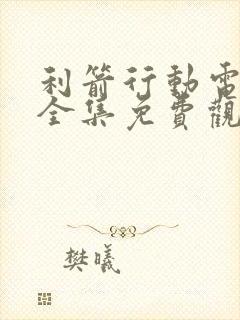 利箭行動電
全集免費觀
樊曦